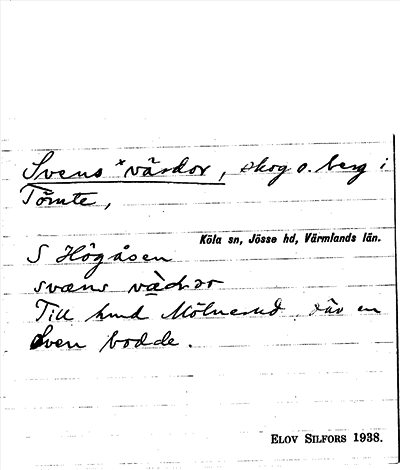 Svens ˣvårdor, skog o. berg i
Tömte,
Köla sn, Jösse hd, Värmlands län.
S Högåsen
svæns
Till hmd Mölnerud där en
Sven bodde.
ELOV SILFORS 1938.